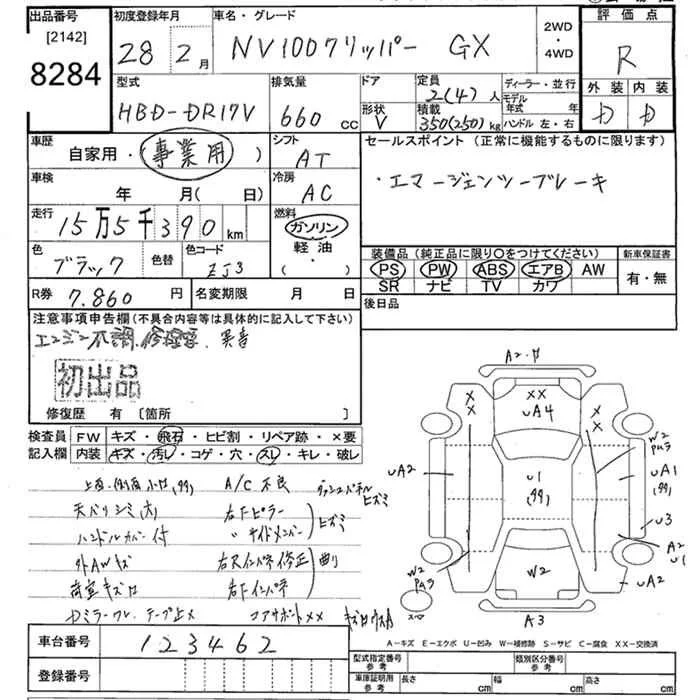 出品番号
[2142]
8284
初度登録年月
28 2月
車名・グレード
NV100クリッパー GX
2WD
・
4WD
評価点
R
外装 内装
D D
型式
HBD-DR17V
排気量
660 cc
ドア
形状
V
定員
2(4)人
積載
350(250)kg
ディーラー・並行
モデル
年式 年
ハンドル 左・右
車歴
自家用・(事業用)
シフト
AT
セールスポイント (正常に機能するものに限ります)
・エマージェンシーブレーキ
車検
年 月(日)
冷房
AC
走行
15万5千390km
燃料
ガソリン
軽油
( ・ )
色
ブラック
色替
色コード
ZJ3
装備品 (純正品に限り○をつけてください)
PS PW ABS エアB AW
SR ナビ TV カワ
新車保証書
有・無
R券
7.860円
名変期限 月 日
後日品
注意事項申告欄(不具合内容等は具体的に記入して下さい)
エンジン不調.修理要.異音
初出品
修復歴 有 〔箇所 〕
検査員
記入欄
FW キズ・飛石・ヒビ割・リペア跡・×要
内装 キズ・汚レ・コゲ・穴・スレ・キレ・破レ
A/C不良
天バリシミ(大) 右Fピラー
ハンドルカバー付 〃サイドメンバー ヒズミ
外AWキズ 右Rインパネ修正 曲り
荷室キズ 右Fインパネ
コアサポートXX
A2
XX
UA4
X
X
X
X
UA2
U1
W2
UA1
U3
A2
U1
W2
UA2
W2
スペア
A3
車台番号
123462
登録番号
A－キズ E－エクボ U－凹み W－補修跡 S－サビ C－腐食 XX－交換済
型式指定番号
参考
類別区分番号
参考
車庫証明用
参考
長さ cm 幅 cm 高さ cm